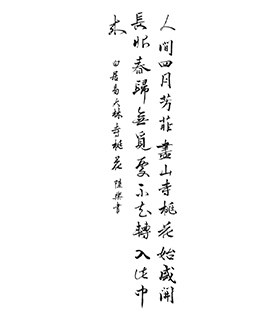 人間四月芳菲盡山寺桃花始盛開
長恨春歸無覓處不知轉入此中
来
白居易大林寺桃花 書